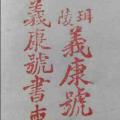 珥陵
義康號
義康號書柬